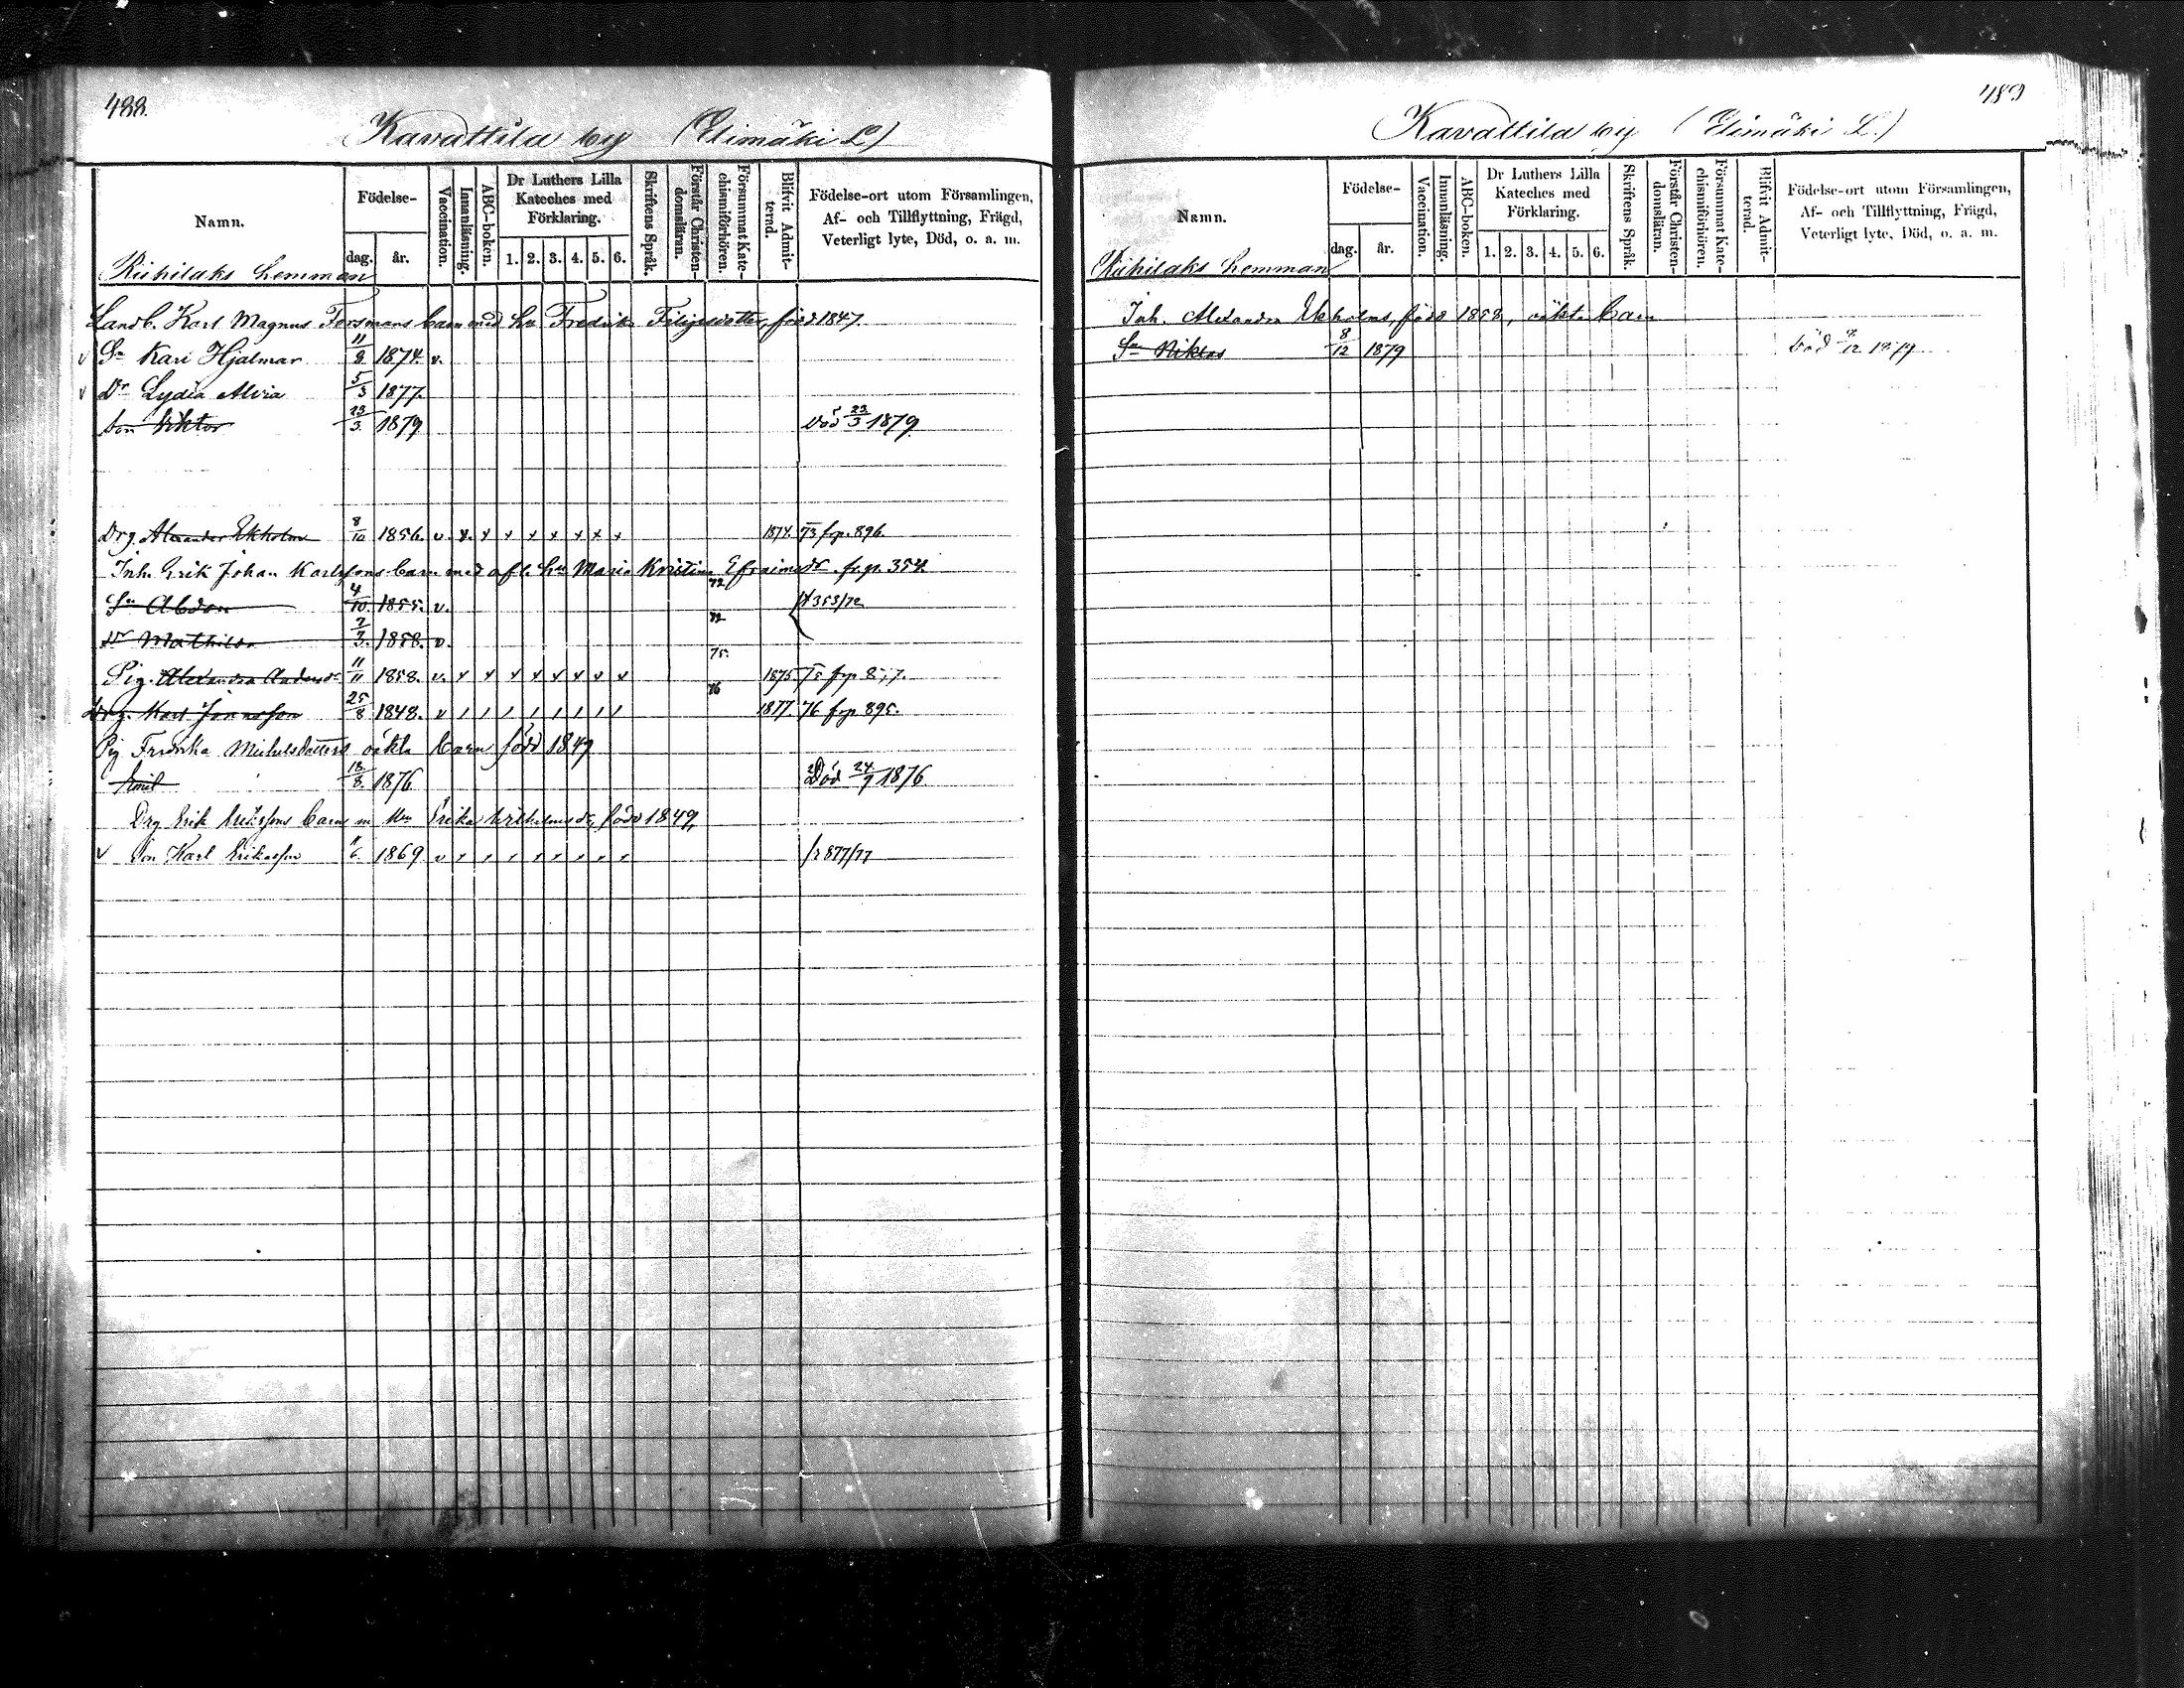 488.
Kavattila by (Elimäki L)
Namn.
Födelse-
dag. år.
Vaccination.
Innanläsning.
ABC-boken.
Dr Luthers Lilla Kateches med Förklaring.
1. 2. 3. 4. 5. 6.
Skriftens Språk.
Förstår Christendomsläran.
Försummat Katechismiförhören.
Blifvit Admitterad.
Födelse-ort utom Församlingen, Af- och Tillflyttning, Frägd, Veterligt lyte, Död, o. a. m.
Riihilaks Hemman
Landb. Karl Magnus Forsmans barn med hu Fredrika Filipsdotter, född 1847.
v Sn Karl Hjalmar 11/8 1874. v.
v Dr Lydia Alvia 5/3 1877.
Son Viktor 23/3 1879 Död 23/3 1879
Drg. Alexander Ekholm 8/10 1856. v. x x x x x x x x 1874. 73 frp. 896.
Inh. Erik Johan Karlssons barn med afl. hu Maria Kristina Efraimsdr frp. 354
Sn Abdon 4/10 1855. v. 72 /t 353/72
Dr Mathilda 7/3. 1858. v. 72
Pig. Alexandra Andersdr 11/11 1858. v. x x x x x x x x 75. 1875 75 frp 877.
Drg. Karl Jonasson 25/8 1848. v 76 1877. 76 frp 895.
Pig Fredrika Michelsdotters oäkta barn född 1849
Emil 18/8. 1876 Död 24/9 1876
Drg Erik Erikssons barn m hu Erika Wilhelmsdr, född 1849,
v Son Karl Eriksson 1869 v /r 877/77
489
Kavattila by (Elimäki L.)
Namn.
Födelse-
dag. år.
Vaccination.
Innanläsning.
ABC-boken.
Dr Luthers Lilla Kateches med Förklaring.
1. 2. 3. 4. 5. 6.
Skriftens Språk.
Förstår Christendomsläran.
Försummat Katechismiförhören.
Blifvit Admitterad.
Födelse-ort utom Församlingen, Af- och Tillflyttning, Frägd, Veterligt lyte, Död, o. a. m.
Riihilaks Hemman
Inh. Alexandra Ekholms, född 1858, oäkta barn
Sn Niklas 8/12 1879 Död /12 1879